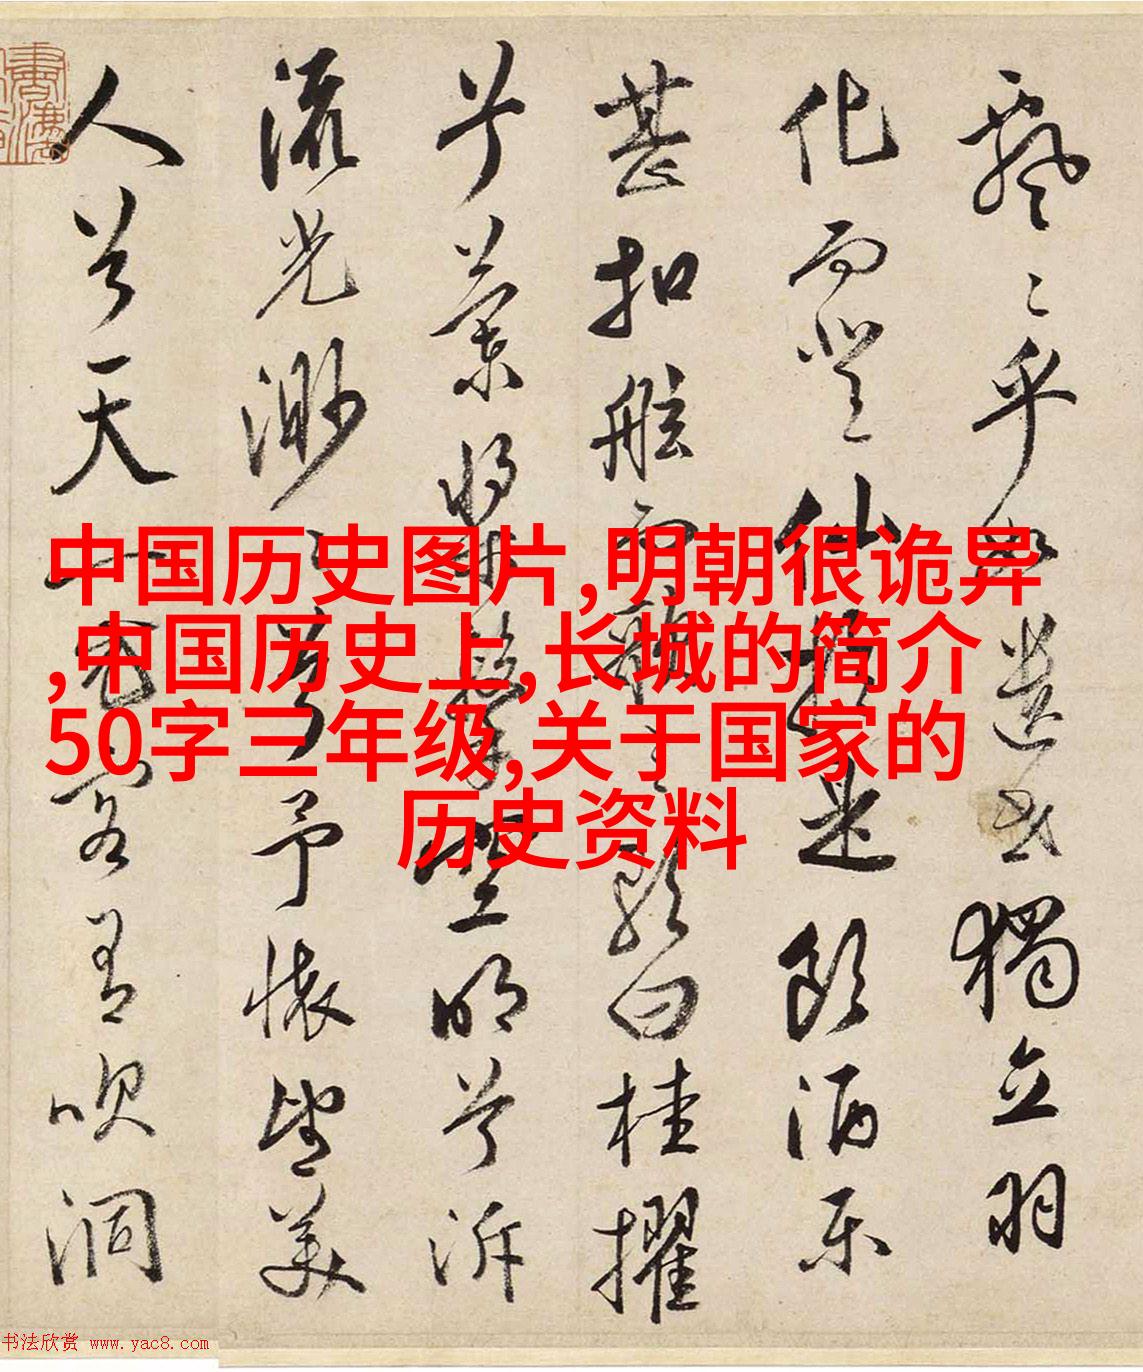 飄〻乎如遺世獨立羽
化而登仙於是飲酒樂
甚扣舷而歌之歌曰桂櫂
兮蘭槳擊空明兮泝
流光渺〻兮予懷望美
人兮天一方客有吹洞
中国历史图片,明朝很诡异
,中国历史上,长城的简介
50字三年级,关于国家的
历史资料
书法欣赏 www.yac8.com